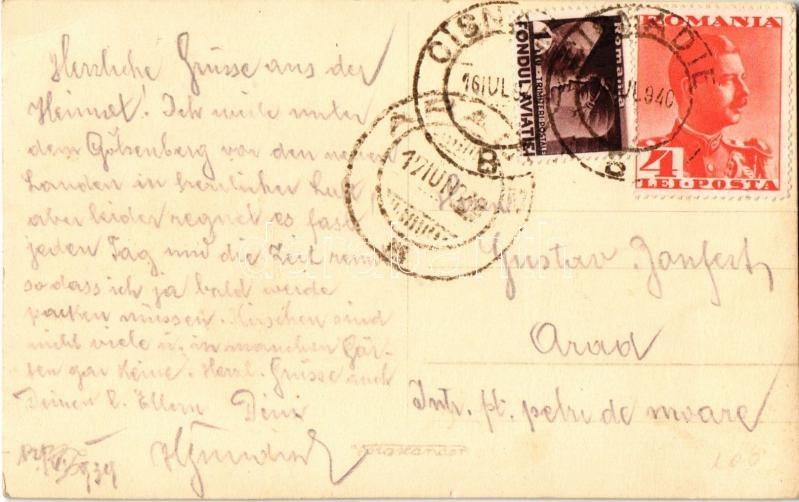 Herzliche Grüsse aus der
Heimat! Ich weile unter
dem Götzenberg vor den neuen
Landen in herrlicher Luft,
aber leider regnet es fast
jeden Tag und die Zeit rennt
so dass ich ja bald werde
packen müssen. Kirschen sind
nicht viele u. in manchen Gär-
ten gar keine. Herzl. Grüsse auch
Deinen l. Eltern Dein
939
CISNADIE
16 IUL 940
B
17 IUL
Romania
1 LEU
FONDUL AVIAȚIEI
ROMANIA
4
LEI-POSTA
Gustav
Arad
Intr. pt. petri de moare
100
darabanth